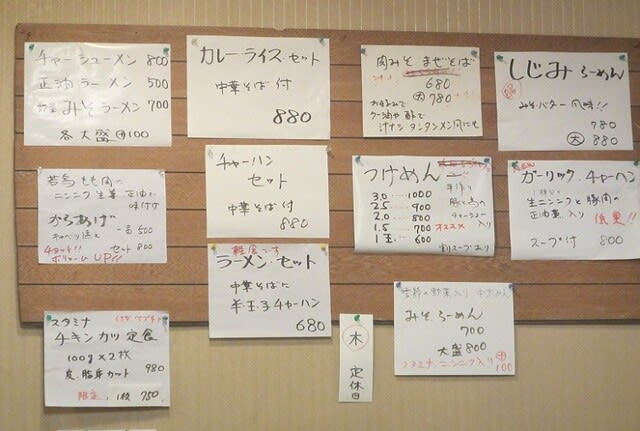 チャーシューメン 800
正油ラーメン 500
みそラーメン 700
各大盛 100
カレーライス・セット
中華そば付
880
肉みそ まぜそば
680
大 780
お好みで
ラー油や酢で
汁ナシ タンタンメン風にも
しじみらーめん
みそバター風味!!
780
大 880
若鳥もも肉に
ニンニク生姜正油で
味付け
からあげ
キャベツ添え 500
セット 800
ボリュームUP!!
チャーハン
セット
中華そば付
880
つけめん
3.0 1000
2.5 900
2.0 800
1.5 700 オススメ
1玉 600
手作り
豚と鳥の
チャーシュー
入り
割りスープあり
ガーリック・チャーハン
生ニンニクと豚肉の
正油煮入り
スープ付 800
軽食です
ラーメン・セット
中華そばに
半玉子チャーハン
680
スタミナ
チキンカツ定食
100g×2枚
皮、脂身カット 980
限定 1枚 750
木
定休日
季節の野菜入り
みそらーめん
700
大盛 800
スタミナ ニンニク入り
100